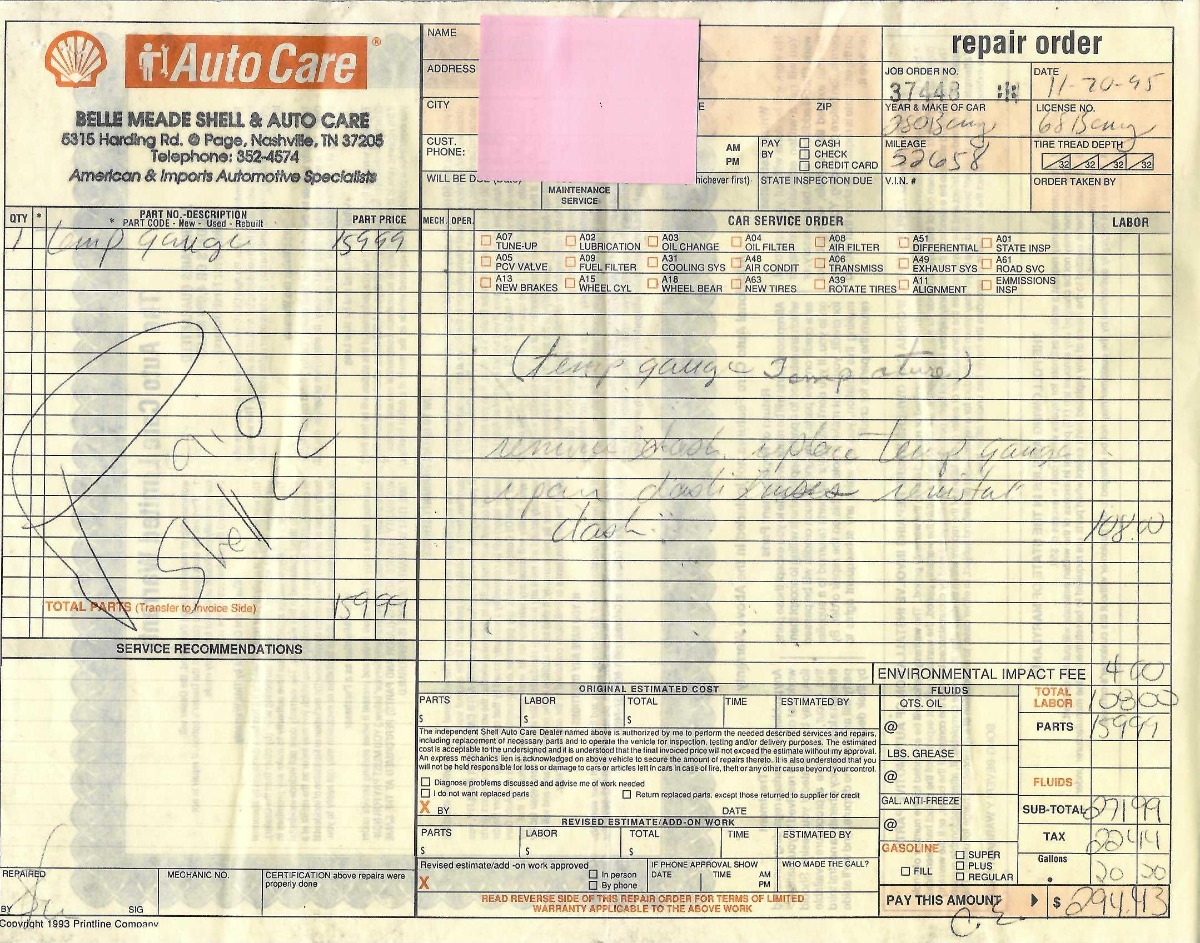 Auto Care ®
BELLE MEADE SHELL & AUTO CARE
5315 Harding Rd. @ Page, Nashville, TN 37205
Telephone: 352-4574
American & Imports Automotive Specialists
NAME
ADDRESS
CITY
ZIP
CUST. PHONE:
AM
PM
PAY BY
CASH
CHECK
CREDIT CARD
MAINTENANCE SERVICE:
whichever first)
STATE INSPECTION DUE
repair order
JOB ORDER NO.
37448
DATE
11-20-95
YEAR & MAKE OF CAR
280 Benz
LICENSE NO.
68 Benz
MILEAGE
52658
TIRE TREAD DEPTH
32 32 32 32
V.I.N. #
ORDER TAKEN BY
QTY * PART NO.-DESCRIPTION PART PRICE
* PART CODE - New - Used - Rebuilt
1 temp gauge 159 99
Paid
Shell
CC
TOTAL PARTS (Transfer to Invoice Side) 159 99
SERVICE RECOMMENDATIONS
REPAIRED
BY
SIG
MECHANIC NO.
CERTIFICATION above repairs were
properly done
Copyright 1993 Printline Company
MECH. OPER. CAR SERVICE ORDER LABOR
A07 TUNE-UP A02 LUBRICATION A03 OIL CHANGE A04 OIL FILTER A08 AIR FILTER A51 DIFFERENTIAL A01 STATE INSP
A05 PCV VALVE A09 FUEL FILTER A31 COOLING SYS A48 AIR CONDIT A06 TRANSMISS A49 EXHAUST SYS A61 ROAD SVC
A13 NEW BRAKES A15 WHEEL CYL A18 WHEEL BEAR A63 NEW TIRES A39 ROTATE TIRES A11 ALIGNMENT EMMISSIONS INSP
(temp gauge
dash replace temp gauge
repair dash
dash 108.00
ENVIRONMENTAL IMPACT FEE 4 00
ORIGINAL ESTIMATED COST
PARTS LABOR TOTAL TIME ESTIMATED BY
$ $ $
The independent Shell Auto Care Dealer named above is authorized by me to perform the needed described services and repairs,
including replacement of necessary parts and to operate the vehicle for inspection, testing and/or delivery purposes. The estimated
cost is acceptable to the undersigned and it is understood that the final invoiced price will not exceed the estimate without my approval.
An express mechanics lien is acknowledged on above vehicle to secure the amount of repairs thereto. It is also understood that you
will not be held responsible for loss or damage to cars or articles left in cars in case of fire, theft or any other cause beyond your control.
Diagnose problems discussed and advise me of work needed
I do not want replaced parts
Return replaced parts, except those returned to supplier for credit
X BY DATE
REVISED ESTIMATE/ADD-ON WORK
PARTS LABOR TOTAL TIME ESTIMATED BY
$ $ $
Revised estimate/add -on work approved
X
In person
By phone
IF PHONE APPROVAL SHOW
DATE TIME AM
PM
WHO MADE THE CALL?
READ REVERSE SIDE OF THIS REPAIR ORDER FOR TERMS OF LIMITED
WARRANTY APPLICABLE TO THE ABOVE WORK
FLUIDS
QTS. OIL
@
LBS. GREASE
@
GAL. ANTI-FREEZE
@
GASOLINE
FILL
SUPER
PLUS
REGULAR
TOTAL LABOR 108 00
PARTS 159 99
FLUIDS
SUB-TOTAL 271 99
TAX 22 44
Gallons
PAY THIS AMOUNT $ 294.43